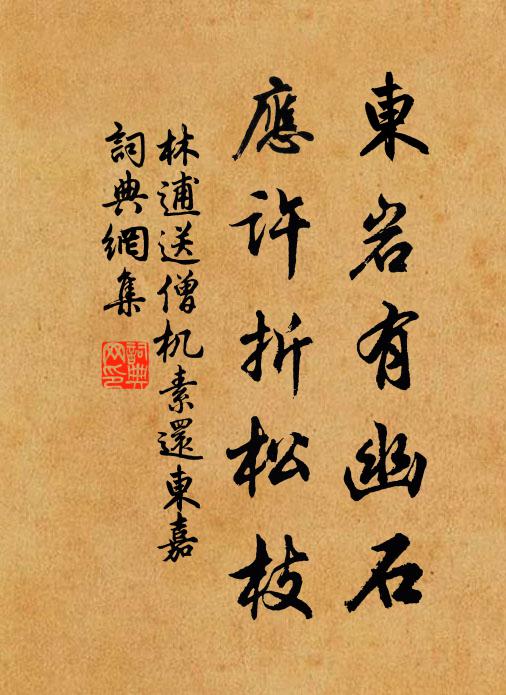 東岩有幽石
應許折松枝
林逋送僧机素還東嘉
詞典網集
詞典
网印